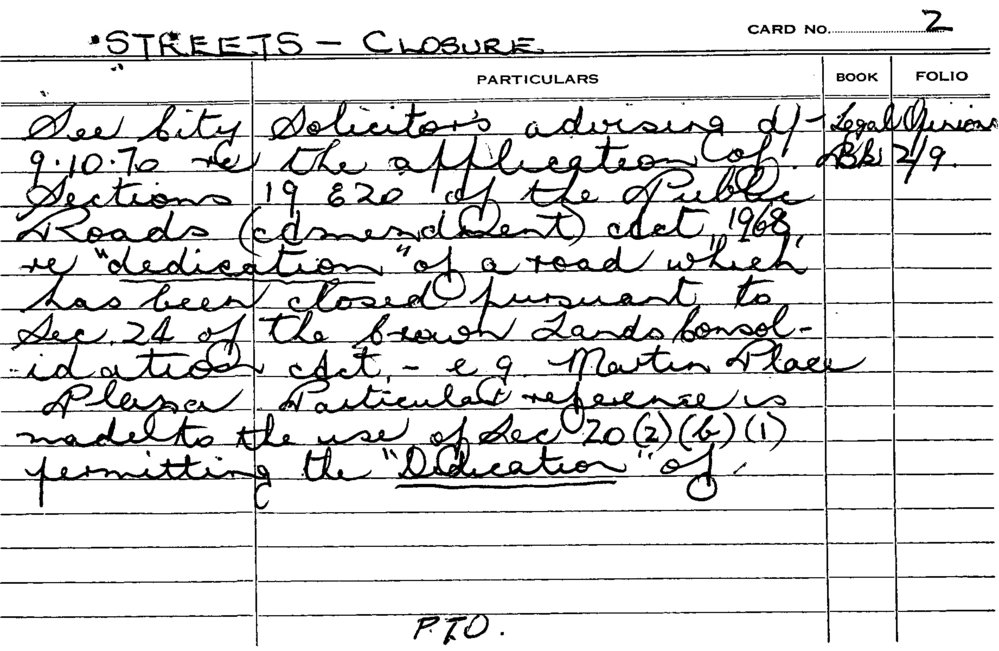 CARD NO. 2
"STREETS - CLOSURE
PARTICULARS BOOK FOLIO
See City Solicitor's advising d/- Legal Opinions
9.10.70 re the application of Bk 2/9.
Sections 19 & 20 of the Public
Roads (Amendment) Act, 1968,
re "dedication" of a road which
has been closed pursuant to
Sec. 24 of the Crown Lands Consol-
idation Act, - e g. Martin Place
Plaza Particular reference is
made to the use of Sec 20 (2) (b) (1)
permitting the "Dedication" of
P.T.O.